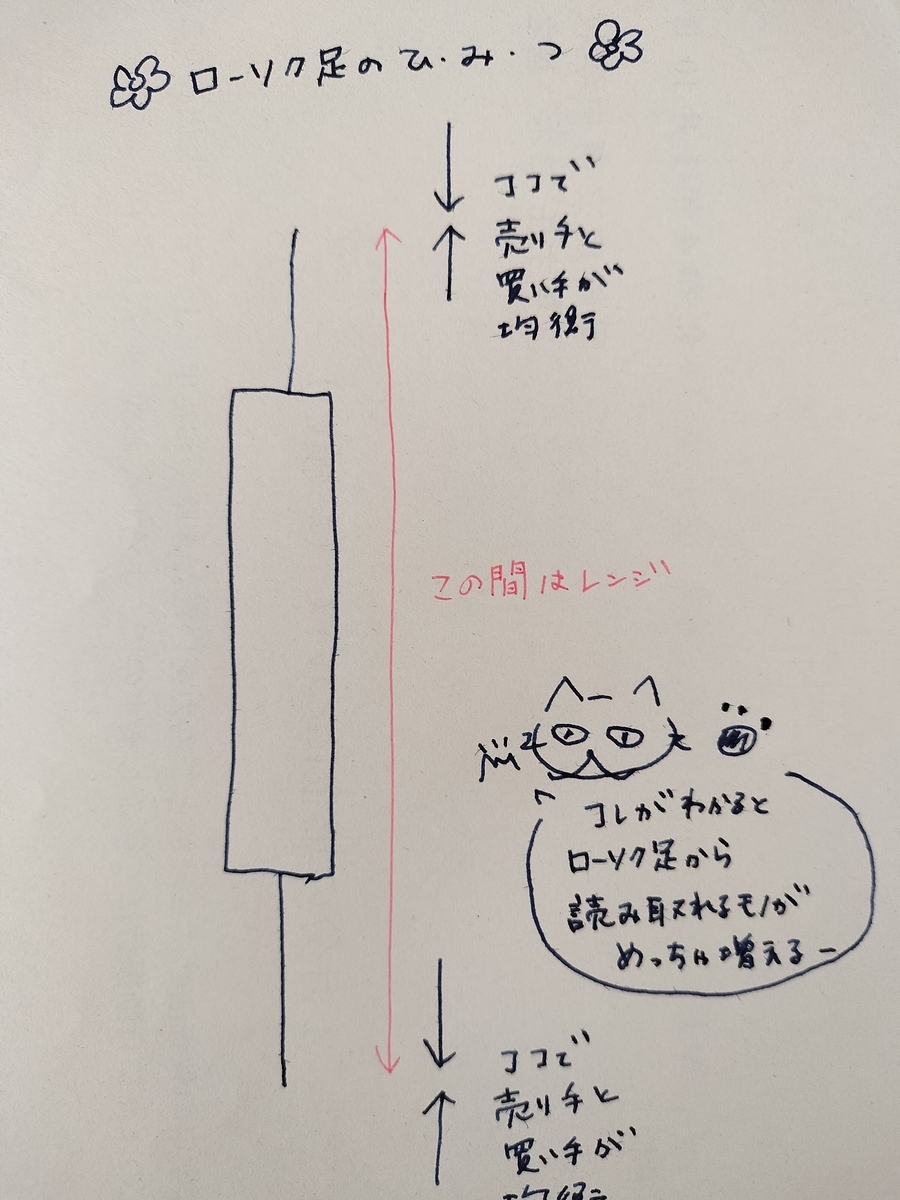 ローソク足のひ・み・つ
ココで
売り手と
買い手が
均衡
この間はレンジ
コレがわかると
ローソク足から
読み取れるモノが
めっちゃ増えるー
ココで
売り手と
買い手が
均衡